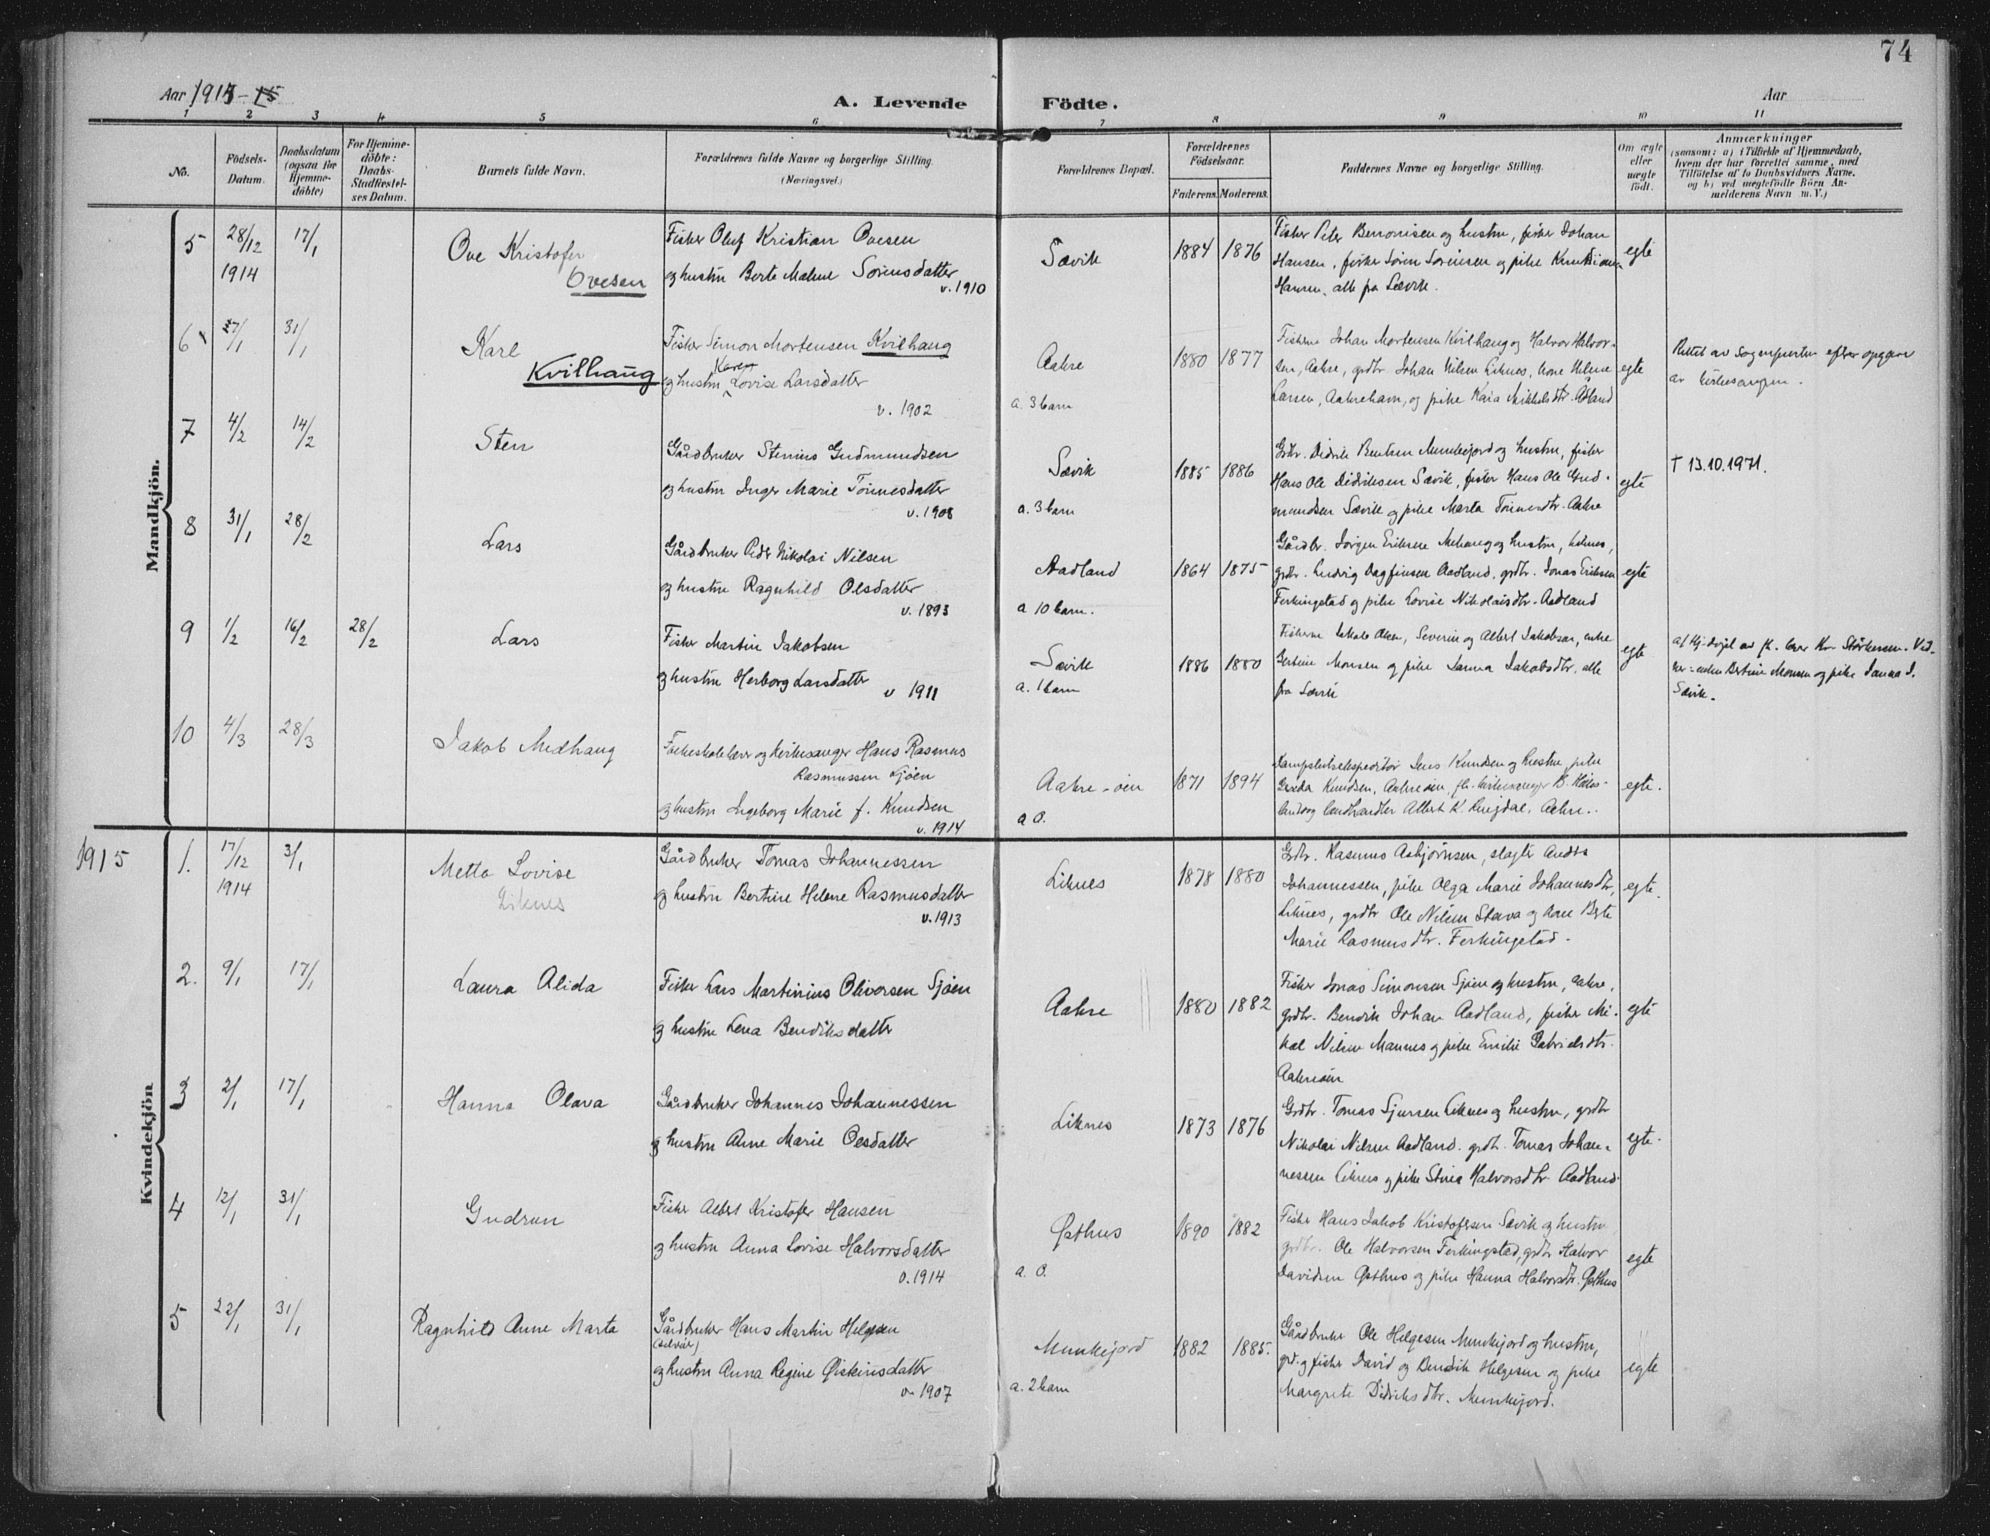 74
Aar 1915
A. Levende Födte.
Aar
1 2 3 4 5 6 7 8 9 10 11
No.
Födsels-
Datum.
Daabsdatum
(ogsaa for
Hjemme-
döbte)
For Hjemme-
döbte:
Daabs-
Stadfæstel-
ses Datum.
Barnets fulde Navn.
Forældrenes fulde Navne og borgerlige Stilling.
(Næringsvei.)
Forældrenes Bopæl.
Forældrenes
Födselsaar.
Faderens. Moderens.
Faddernes Navne og borgerlige Stilling.
Om ægte
eller
uægte
født.
Anmærkninger
(saasom: a) i Tilfælde af Hjemmedaab,
hvem der har forrettet samme, med
Tilföielse af to Daabsvidners Navne,
og b) ved uægtefödte Börn An-
melderens Navn m. V.)
Mandkjön.
5
28/12
1914
17/1
Ove Kristofer
Ovesen
Fisker Oluf Kristian Ovesen
og hustru Berte Malene Sörensdatter
v. 1910
Sævik
1884 1876
Fisker Peter Bennonisen og hustru, fisker Johan
Hansen, fisker Sören Sörensen og pike
Hansen, alle fra Sævik.
egte
6
27/1
31/1
Karl
Kvilhaug
Fisker Simon Mortensen Kvilhaug
Karen
og hustru Lovise Larsdatter
v. 1902
Aakre
a. 3 barn
1880 1877
Fiskerne Johan Mortensen Kvilhaug og Halvor Halvor-
sen, Aakre, grdbr. Johan Nilsen Liknes, kone Helene
Larsen, Aakrehavn, og pike Kaia Mikkelsdtr. Ådland
egte
Rettet av sognepresten efter opgave
av kirkesangeren.
7
4/2
14/2
Sten
Gårdbruker Stenius Gudmundsen
og hustru Inger Marie Tönnesdatter
v. 1908
Sævik
a. 3 barn
1885 1886
Grdbr. Didrik Munkejord og hustru, fisker
Hans Ole Didriksen Sævik, fisker Hans Ole Gud-
mundsen Sævik og pike Marta Tönnesdtr. Aakre
egte
† 13.10.1971.
8
31/1
28/2
Lars
Gårdbruker Peder Nikolai Nilsen
og hustru Ragnhild Olsdatter
v. 1893
Aadland
a 10 barn.
1864 1875
Gårdbr. Jörgen Eriksen Mehaug og hustru, Liknes,
grdbr. Ludvig Dagfinsen Aadland, grdbr. Jonas Eriksen
Ferkingstad og pike Lovise Nikolaisdtr. Aadland
egte
9
1/2
16/2
28/2
Lars
Fisker Martin Jakobsen
og hustru Herborg Larsdatter
v 1911
Sævik
a. 1 barn
1886 1880
Fiskerne Jakob Olsen, Severin og Albert Jakobsen, enke
Bertine Monsen og pike Janna Jakobsdtr. alle
fra Sævik
egte
a/ Hj.döpt av fr. Störkersen. Vid-
ner: enken Bertine Monsen og pike Janna J.
Sævik.
10
4/3
28/3
Jakob Medhaug
Folkeskolelærer og kirkesanger Hans Rasmus
Rasmussen Sjöen
og hustru Ingeborg Marie f. Knudsen
v. 1914
Aakre-öen
a 0.
1871 1894
Dampskibsekspeditör Jens Knudsen og hustru, pike
Gerda Knudsen, Aakreöen, fh. kirkesanger
landhandler Albert K. Aakre.
egte.
1915
Kvindekjön
1.
17/12
1914
3/1
Metta Lovise
Liknes
Gårdbruker Tomas Johannessen
og hustru Bertine Helene Rasmusdatter
v. 1913
Liknes
1878 1880
Grdbr. Rasmus Asbjörnsen, slagter Anders
Johannessen, pike Olga Marie Johannesdtr,
Liknes, grdbr Ole Nilsen Stava og kone Berte
Marie Rasmusdtr. Ferkingstad.
egte.
2.
9/1
17/1
Laura Alida
Fisker Lars Martinius Oliversen Sjöen
og hustru Lena Bendiksdatter
Aakre
1880 1882
Fisker Jonas Simonsen Sjöen og hustru, Aakre,
grdbr. Bendik Johan Aadland, fisker Mi-
kal Nilsen Mannes og pike Emilie Gabrielsdtr.
Aakreöen
egte
3
2/1
17/1
Hanna Olava
Gårdbruker Johannes Johannessen
og hustru Anne Marie Olsdatter
Liknes
1873 1876
Grdbr. Tomas Sjursen Liknes og hustru, grdbr
Nikolai Nilsen Aadland, grdbr. Tomas Johan-
nessen Liknes og pike Stina Halvorsdtr. Aadland.
egte.
4
12/1
31/1
Gudrun
Fisker Albert Kristofer Hansen
og hustru Anna Lovise Halvorsdatter
v. 1914
Östhus
a. 0.
1890 1882
Fisker Hans Jakob Kristofersen Sævik og hustru,
grdbr. Ole Halvorsen Ferkingstad, grdbr Halvor
Davidsen Östhus og pike Hanna Halvorsdtr. Östhus
egte
5
22/1
31/1
Ragnhild Anne Marta
Gårdbruker Hans Martin Helgesen
(selveier)
og hustru Anna Regine Östensdatter
v. 1907
Munkejord
a. 2 barn
1882 1885.
Gårdbruker Ole Helgesen Munkejord og hustru,
grdbr. og fisker David og Bendik Helgesen og pike
Margrete Didriksdtr. Munkejord.
egte